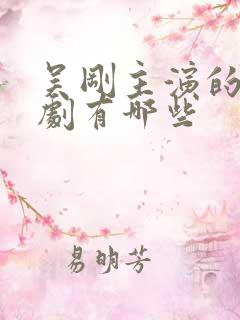 吴刚主演的
劇有哪些
易明芳